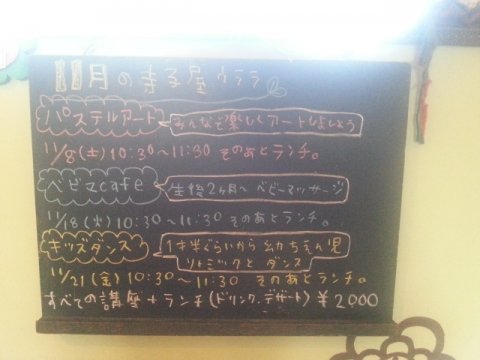 11月の寺子屋ウララ
パステルアート みんなで楽しくアートしましょう
11/8(土)10:30〜11:30 そのあとランチ。
ベビマcafe 生後2ヶ月〜ベビーマッサージ
11/18(火)10:30〜11:30 そのあとランチ。
キッズダンス 1才半ぐらいから幼ちえん児
リトミックとダンス
11/21(金)10:30〜11:30 そのあとランチ。
すべての講座+ランチ(ドリンク.デザート)¥2000